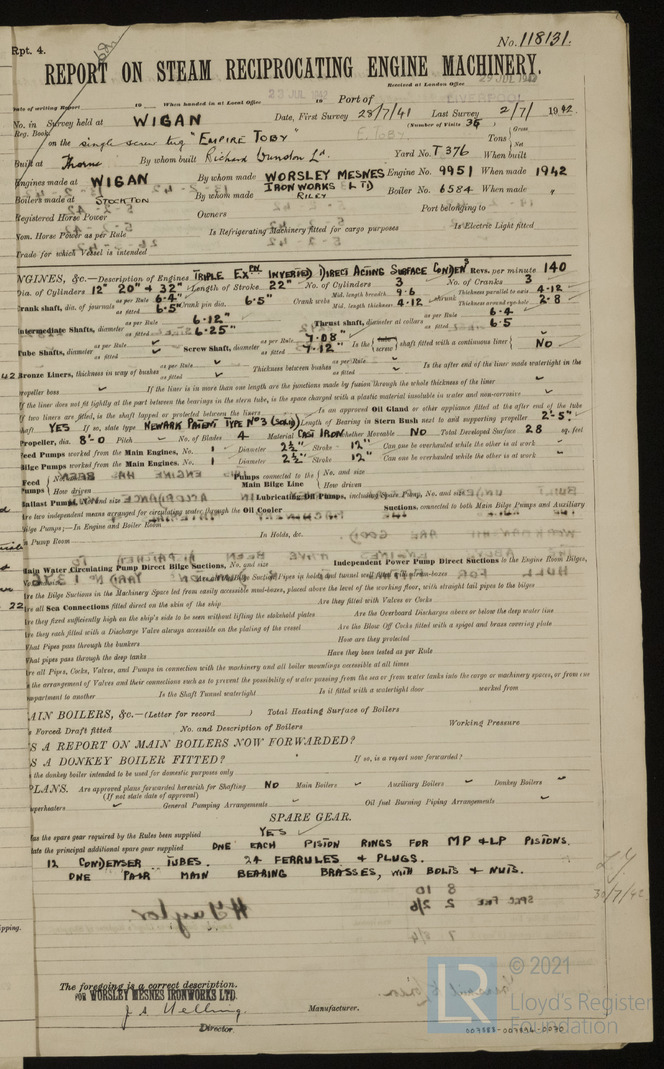 Rpt. 4.
No. 118131.
REPORT ON STEAM RECIPROCATING ENGINE MACHINERY.
Received at London Office 29 JUL
Date of writing Report 19 When handed in at Local Office 23 JUL 1942 19 Port of LIVERPOOL
No. in Survey held at WIGAN Date, First Survey 28/7/41 Last Survey 2/7/ 1942
Reg. Book. (Number of Visits 36)
on the single screw tug "EMPIRE TOBY" E. TOBY Tons Gross Net
Built at Thorne By whom built Richard Dunston Ld. Yard No. T376 When built
Engines made at WIGAN By whom made WORSLEY MESNES IRONWORKS LTD Engine No. 9951 When made 1942
Boilers made at STOCKTON By whom made RILEY Boiler No. 6584 When made "
Registered Horse Power Owners Port belonging to
Nom. Horse Power as per Rule Is Refrigerating Machinery fitted for cargo purposes Is Electric Light fitted
Trade for which Vessel is intended
NGINES, &c.—Description of Engines TRIPLE EXPN INVERTED DIRECT ACTING SURFACE CONDENS Revs. per minute 140
Dia. of Cylinders 12" 20" & 32" Length of Stroke 22" No. of Cylinders 3 No. of Cranks 3
Crank shaft, dia. of journals as per Rule 6.4" as fitted 6.5" Crank pin dia. 6.5" Crank webs Mid. length breadth 9.6 Mid. length thickness 4.12 shrunk Thickness parallel to axis 4.12 Thickness around eye-hole 2.8
Intermediate Shafts, diameter as per Rule 6.12" as fitted 6.25" Thrust shaft, diameter at collars as per Rule 6.4 as fitted 6.5
Tube Shafts, diameter as per Rule as fitted Screw Shaft, diameter as per Rule 7.08" as fitted 7.12" Is the tube screw shaft fitted with a continuous liner NO
Bronze Liners, thickness in way of bushes as per Rule as fitted Thickness between bushes as per Rule as fitted Is the after end of the liner made watertight in the
propeller boss If the liner is in more than one length are the junctions made by fusion through the whole thickness of the liner
If the liner does not fit tightly at the part between the bearings in the stern tube, is the space charged with a plastic material insoluble in water and non-corrosive
If two liners are fitted, is the shaft lapped or protected between the liners Is an approved Oil Gland or other appliance fitted at the after end of the tube
shaft YES If so, state type NEWARK PATENT TYPE No 3 (SOLID) Length of Bearing in Stern Bush next to and supporting propeller 2'-5"
Propeller, dia. 8'-0 Pitch No. of Blades 4 Material CAST IRON whether Moveable NO Total Developed Surface 28 sq. feet
Feed Pumps worked from the Main Engines, No. 1 Diameter 2½" Stroke 12" Can one be overhauled while the other is at work
Bilge Pumps worked from the Main Engines, No. 1 Diameter 2½" Stroke 12" Can one be overhauled while the other is at work
Feed Pumps No. and size How driven Pumps connected to the Main Bilge Line No. and size How driven
Ballast Pumps, No. and size Lubricating Oil Pumps, including Spare Pump, No. and size
Are two independent means arranged for circulating water through the Oil Cooler Suctions, connected to both Main Bilge Pumps and Auxiliary
Bilge Pumps;—In Engine and Boiler Room
In Pump Room In Holds, &c.
Main Water Circulating Pump Direct Bilge Suctions, No. and size Independent Power Pump Direct Suctions to the Engine Room Bilges,
Are the Bilge Suctions in the Machinery Space led from easily accessible mud-boxes, placed above the level of the working floor, with straight tail pipes to the bilges
Are all Sea Connections fitted direct on the skin of the ship Are they fitted with Valves or Cocks
Are they fixed sufficiently high on the ship's side to be seen without lifting the stokehold plates Are the Overboard Discharges above or below the deep water line
Are they each fitted with a Discharge Valve always accessible on the plating of the vessel Are the Blow Off Cocks fitted with a spigot and brass covering plate
What Pipes pass through the bunkers How are they protected
What pipes pass through the deep tanks Have they been tested as per Rule
Are all Pipes, Cocks, Valves, and Pumps in connection with the machinery and all boiler mountings accessible at all times
Is the arrangement of Valves and their connections such as to prevent the possibility of water passing from the sea or from water tanks into the cargo or machinery spaces, or from one
compartment to another Is the Shaft Tunnel watertight Is it fitted with a watertight door worked from
AIN BOILERS, &c.—(Letter for record ) Total Heating Surface of Boilers
Is Forced Draft fitted No. and Description of Boilers Working Pressure
S A REPORT ON MAIN BOILERS NOW FORWARDED?
S A DONKEY BOILER FITTED? If so, is a report now forwarded?
Is the donkey boiler intended to be used for domestic purposes only
PLANS. Are approved plans forwarded herewith for Shafting NO Main Boilers Auxiliary Boilers Donkey Boilers
(If not state date of approval)
Superheaters General Pumping Arrangements Oil fuel Burning Piping Arrangements
SPARE GEAR.
Has the spare gear required by the Rules been supplied YES
State the principal additional spare gear supplied ONE EACH PISTON RINGS FOR MP & LP PISTONS.
12 CONDENSER TUBES. 24 FERRULES & PLUGS.
ONE PAIR MAIN BEARING BRASSES, WITH BOLTS & NUTS.
30/7/42
The foregoing is a correct description.
FOR WORSLEY MESNES IRONWORKS LTD.
Manufacturer.
Director
© 2021
Lloyd's Register
Foundation
LR
007883-007896-0070